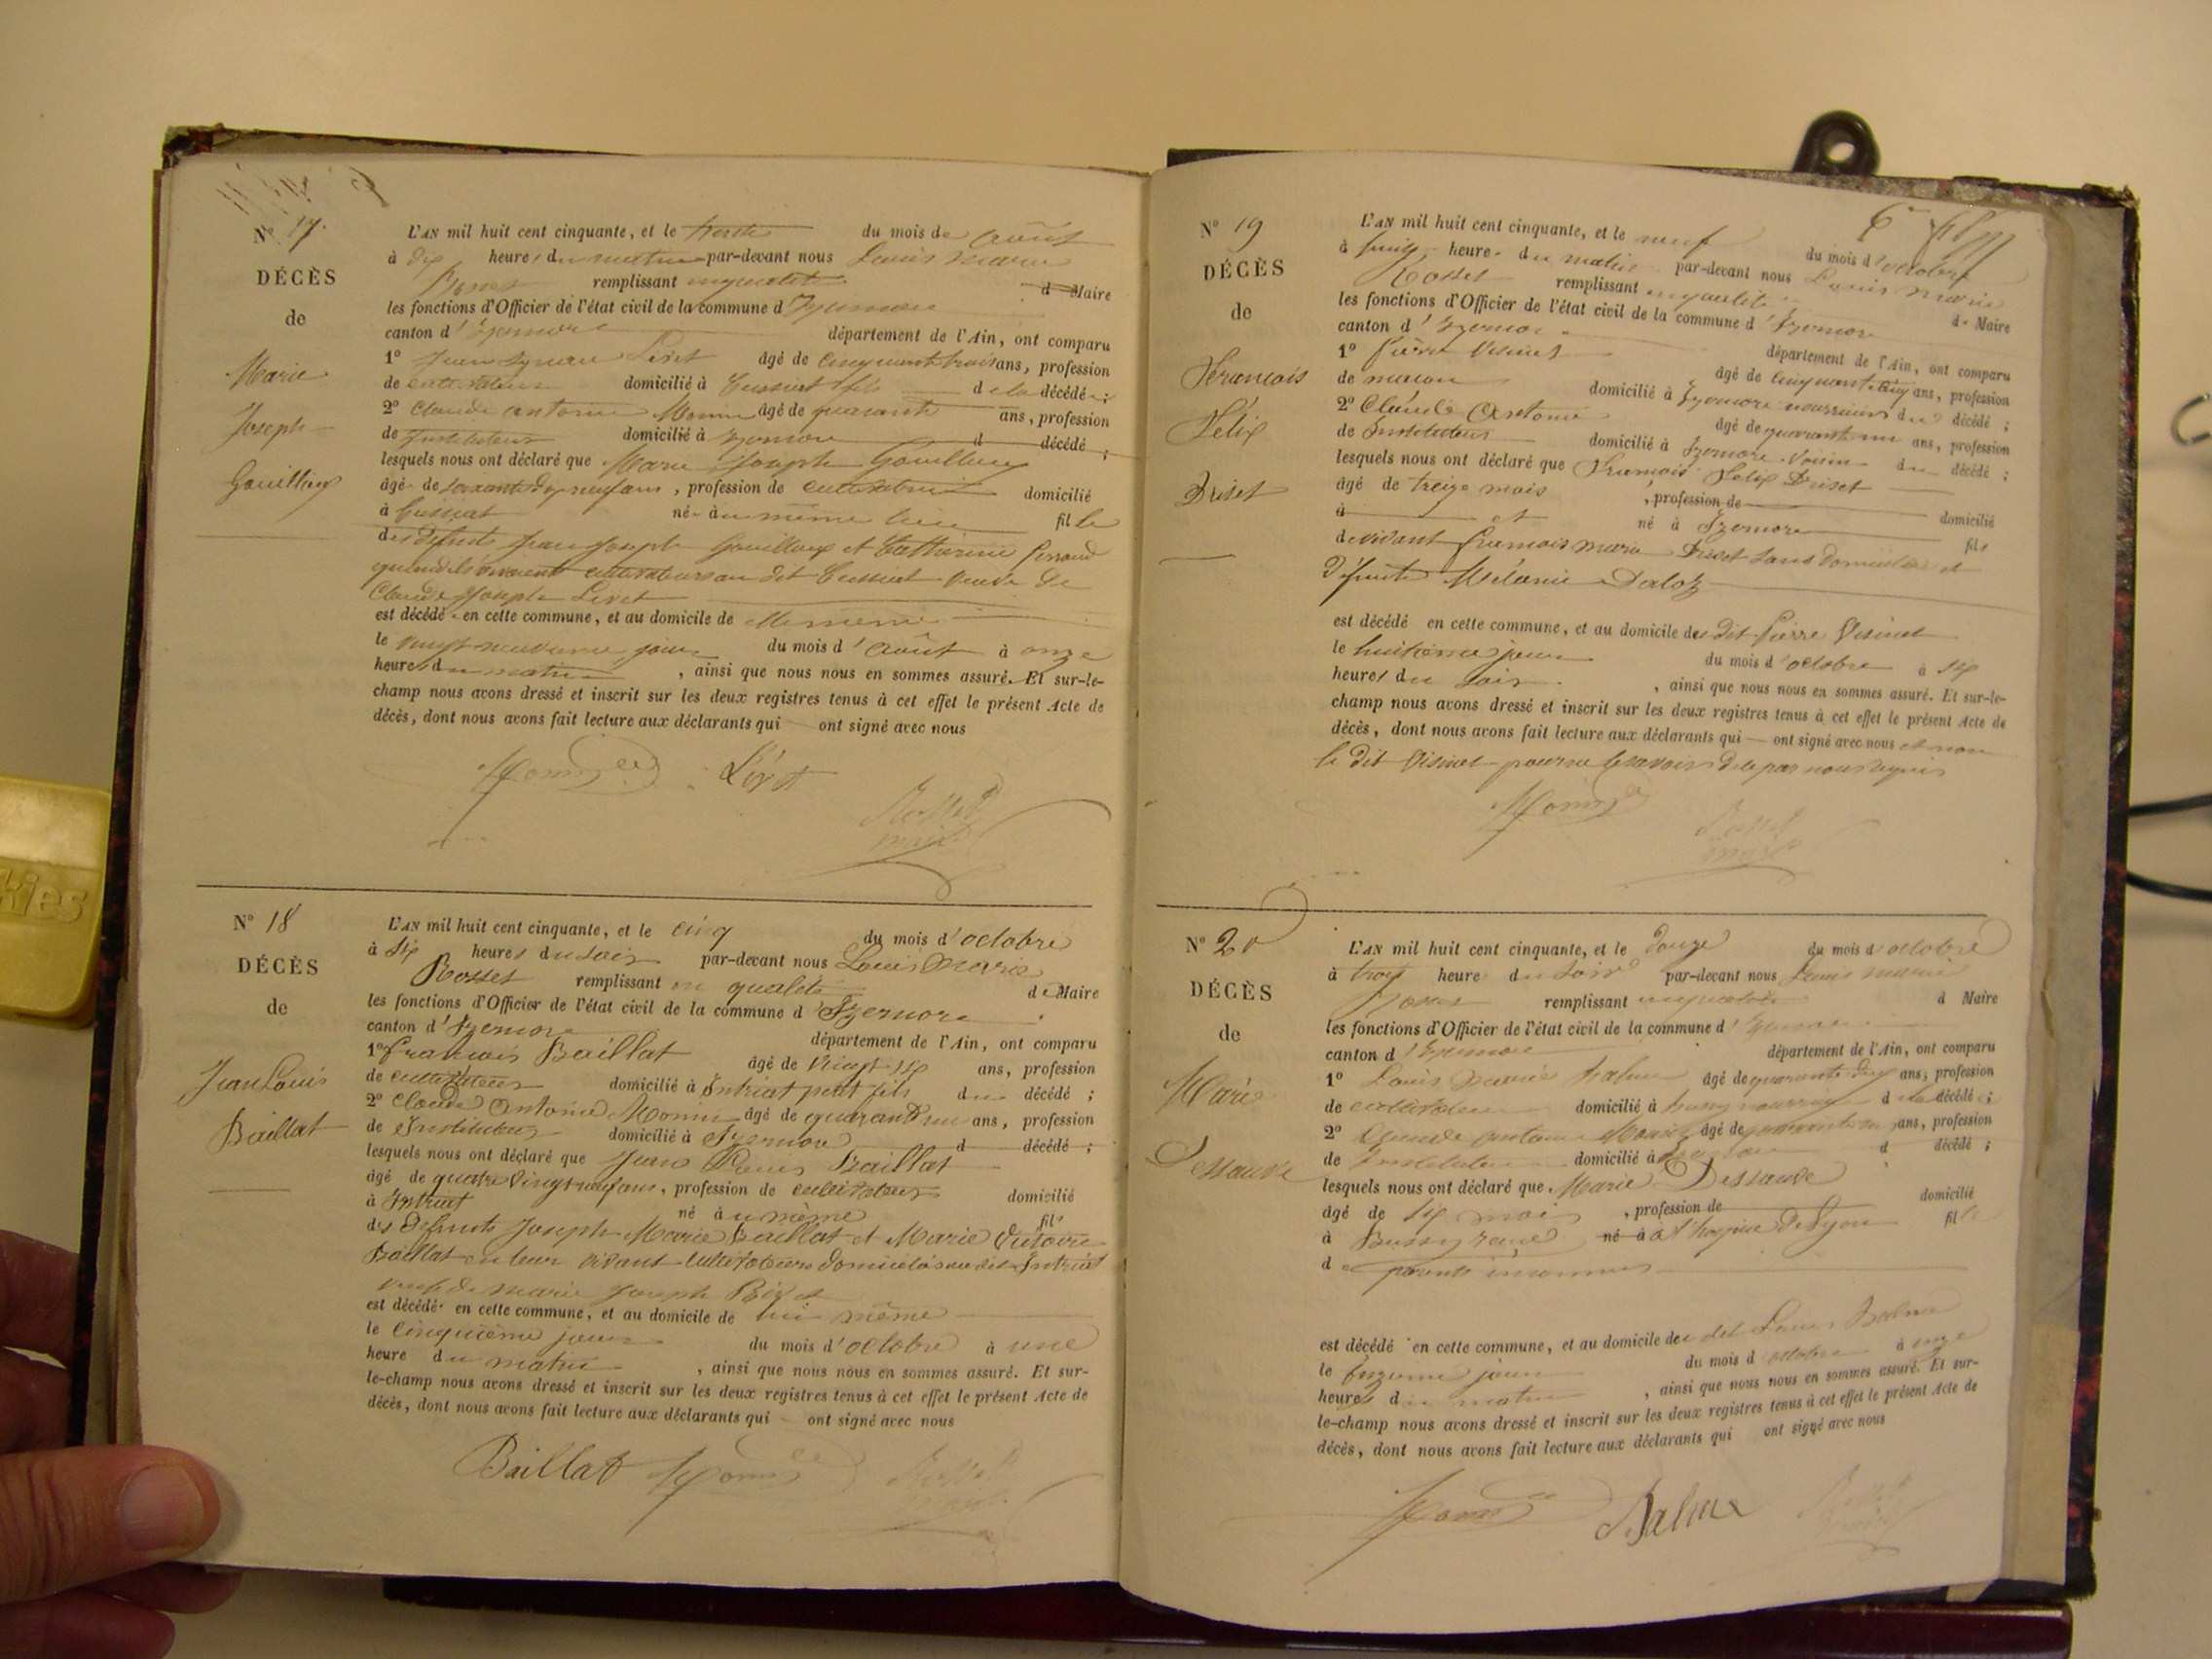 N° 17.
DÉCÈS
de
Marie
Joseph
Gouilloux
L'AN mil huit cent cinquante, et le trente du mois de août
à dix heures du matin par-devant nous Louis Marie
Rosset remplissant en qualité d Maire
les fonctions d'Officier de l'état civil de la commune d'Izernore
canton d'Izernore département de l'Ain, ont comparu
1° Jean Livet âgé de cinquante trois ans, profession
de cultivateur domicilié à Cessiat fils de la décédée ;
2° Claude antoine Monin âgé de quarante ans, profession
de Instituteur domicilié à Izernore d décédé ;
lesquels nous ont déclaré que Marie Joseph Gouilloux
âgée de soixante dix neuf ans, profession de cultivatrice domicilié
à Cessiat née au même lieu fille
des défunts Jean Joseph Gouilloux et Catherine
quand ils vivaient cultivateurs au dit Cessiat veuve de
Claude Joseph Livet
est décédée en cette commune, et au domicile de elle même
le vingt neuvième jour du mois d'août à onze
heures du matin, ainsi que nous nous en sommes assuré. Et sur-le-
champ nous avons dressé et inscrit sur les deux registres tenus à cet effet le présent Acte de
décès, dont nous avons fait lecture aux déclarants qui ont signé avec nous
Monin Livet
Rosset
maire
N° 18
DÉCÈS
de
Jean Louis
Baillat
L'AN mil huit cent cinquante, et le cinq du mois d'octobre
à six heures du soir par-devant nous Louis Marie
Rosset remplissant en qualité de Maire
les fonctions d'Officier de l'état civil de la commune d Izernore
canton d'Izernore département de l'Ain, ont comparu
1° François Baillat âgé de vingt six ans, profession
de cultivateur domicilié à Intriat petit fils du décédé ;
2° Claude Antoine Monin âgé de quarante un ans, profession
de Instituteur domicilié à Izernore d décédé ;
lesquels nous ont déclaré que Jean Louis Baillat
âgé de quatre vingt neuf ans, profession de cultivateur domicilié
à Intriat né au même fils
des défunts Joseph Marie Baillat et Marie Victoire
Baillat en leur vivant cultivateurs domiciliés au dit Intriat
veuf de marie Joseph
est décédé en cette commune, et au domicile de lui même
le cinquième jour du mois d'octobre à une
heure du matin, ainsi que nous nous en sommes assuré. Et sur-
le-champ nous avons dressé et inscrit sur les deux registres tenus à cet effet le présent Acte de
décès, dont nous avons fait lecture aux déclarants qui ont signé avec nous
Baillat Monin Rosset
maire
N° 19
DÉCÈS
de
François
Félix
Driset
L'AN mil huit cent cinquante, et le neuf du mois d'octobre
à heure du matin par-devant nous Louis Marie
Rosset remplissant en qualité de Maire
les fonctions d'Officier de l'état civil de la commune d'Izernore
canton d'Izernore département de l'Ain, ont comparu
1° Pierre Visinet âgé de cinquante cinq ans, profession
de macon domicilié à Izernore nourricier du décédé ;
2° Claude Antoine âgé de quarante un ans, profession
de Instituteur domicilié à Izernore voisin du décédé ;
lesquels nous ont déclaré que François Félix Driset
âgé de treize mois, profession de domicilié
à et né à Izernore fils
de vivant François marie Driset sans domicile et
défunte Mélanie Daloz
est décédé en cette commune, et au domicile du dit Pierre Visinet
le huitième jour du mois d'octobre à six
heures du soir, ainsi que nous nous en sommes assuré. Et sur-le-
champ nous avons dressé et inscrit sur les deux registres tenus à cet effet le présent Acte de
décès, dont nous avons fait lecture aux déclarants qui ont signé avec nous et non
le dit Visinet pour ne le savoir de ce par nous requis
Monin Rosset
maire
N° 20
DÉCÈS
de
Marie
Dessauve
L'AN mil huit cent cinquante, et le douze du mois d'octobre
à trois heure du soir par-devant nous Louis marie
Rosset remplissant en qualité d Maire
les fonctions d'Officier de l'état civil de la commune d'Izernore
canton d'Izernore département de l'Ain, ont comparu
1° Louis Marie Balme âgé de quarante six ans, profession
de cultivateur domicilié à d décédé ;
2° Claude antoine Monin âgé de quarante un ans, profession
de Instituteur domicilié à Izernore d décédé ;
lesquels nous ont déclaré que Marie Dessauve
âgé de six mois, profession de domicilié
à né à à l'hospice de Lyon fille
de parents inconnus
est décédé en cette commune, et au domicile du dit Louis Balme
le onzième jour du mois d octobre à onze
heures du matin, ainsi que nous nous en sommes assuré. Et sur-
le-champ nous avons dressé et inscrit sur les deux registres tenus à cet effet le présent Acte de
décès, dont nous avons fait lecture aux déclarants qui ont signé avec nous
Monin Balme Rosset
kies